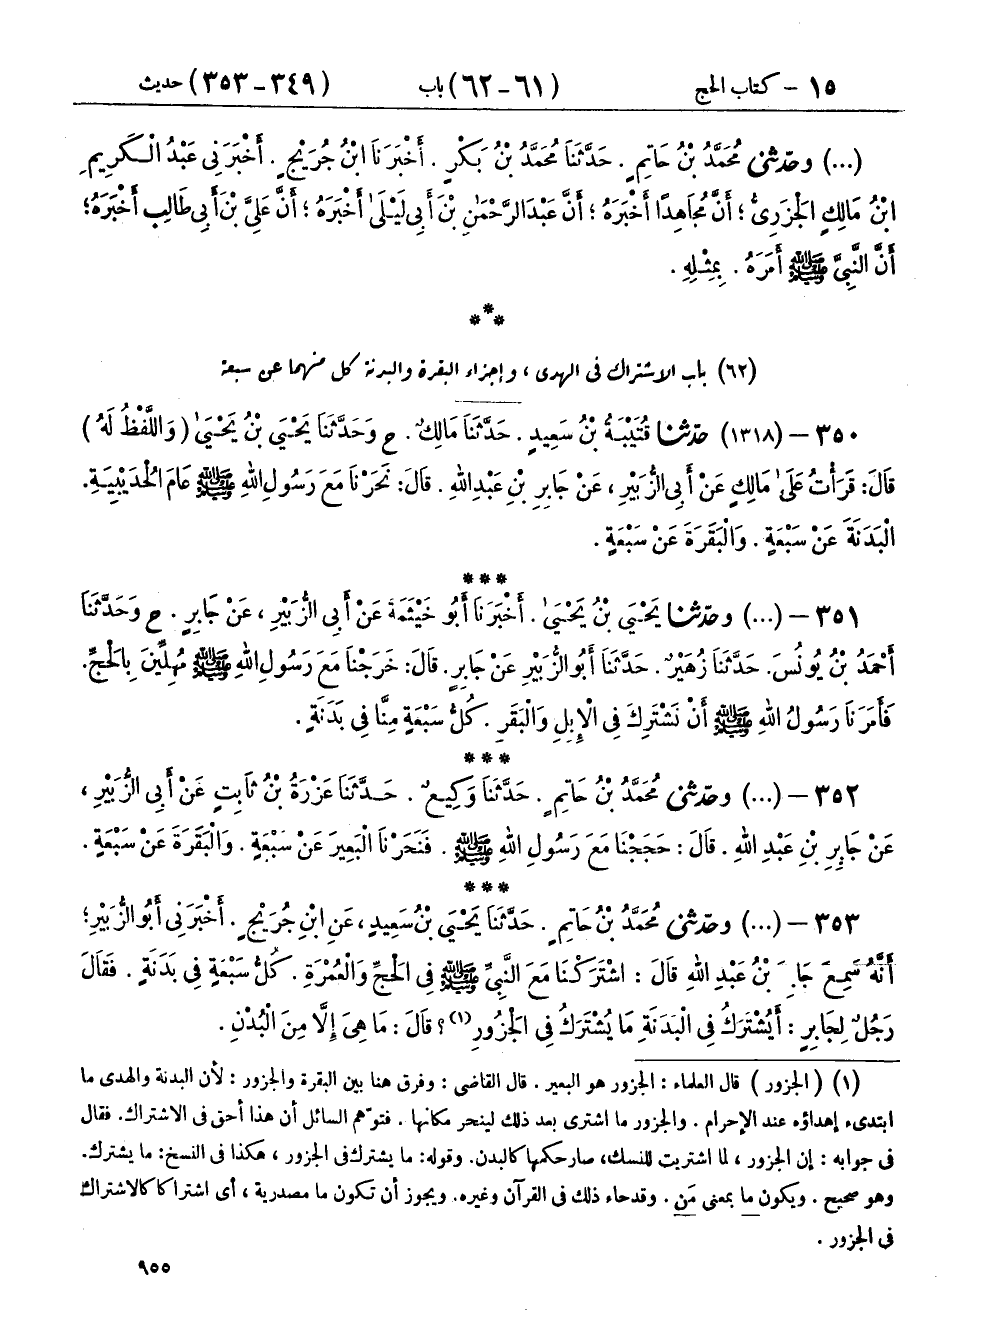 ١٥ - كتاب الحج (٦١-٦٢) باب (٣٤٩-٣٥٣) حديث
(...) وحدّثنى مُحَمَّدُ بْنُ حَاتِمٍ . حَدَّثَنَا مُحَمَّدُ بْنُ بَكْرٍ . أَخْبَرَنَا ابْنُ جُرَيْجٍ . أَخْبَرَنِى عَبْدُ الْكَرِيمِ
ابْنُ مَالِكٍ الْجَزَرِىُّ ؛ أَنَّ مُجَاهِدًا أَخْبَرَهُ ؛ أَنَّ عَبْدَ الرَّحْمَٰنِ بْنَ أَبِى لَيْلَىٰ أَخْبَرَهُ ؛ أَنَّ عَلِىَّ بْنَ أَبِى طَالِبٍ أَخْبَرَهُ؛
أَنَّ النَّبِىَّ ﷺ أَمَرَهُ . بِمِثْلِهِ .
***
(٦٢) باب الاشتراك فى الهدى ، وإجزاء البقرة والبدنة كل منهما عن سبعة
٣٥٠ - (١٣١٨) حدّثنا قُتَيْبَةُ بْنُ سَعِيدٍ . حَدَّثَنَا مَالِكٌ . ح وَحَدَّثَنَا يَحْيَىٰ بْنُ يَحْيَىٰ (وَاللَّفْظُ لَهُ)
قَالَ: قَرَأْتُ عَلَىٰ مَالِكٍ عَنْ أَبِى الزُّبَيْرِ ، عَنْ جَابِرِ بْنِ عَبْدِ اللهِ . قَالَ: نَحَرْنَا مَعَ رَسُولِ اللهِ ﷺ عَامَ الْحُدَيْبِيَةِ.
الْبَدَنَةَ عَنْ سَبْعَةٍ . وَالْبَقَرَةَ عَنْ سَبْعَةٍ .
***
٣٥١ - (...) وحدّثنا يَحْيَىٰ بْنُ يَحْيَىٰ . أَخْبَرَنَا أَبُو خَيْثَمَةَ عَنْ أَبِى الزُّبَيْرِ ، عَنْ جَابِرٍ . ح وَحَدَّثَنَا
أَحْمَدُ بْنُ يُونُسَ. حَدَّثَنَا زُهَيْرٌ. حَدَّثَنَا أَبُو الزُّبَيْرِ عَنْ جَابِرٍ. قَالَ: خَرَجْنَا مَعَ رَسُولِ اللهِ ﷺ مُهِلِّينَ بِالْحَجِّ.
فَأَمَرَنَا رَسُولُ اللهِ ﷺ أَنْ نَشْتَرِكَ فِى الْإِبِلِ وَالْبَقَرِ . كُلُّ سَبْعَةٍ مِنَّا فِى بَدَنَةٍ .
***
٣٥٢ - (...) وحدّثنى مُحَمَّدُ بْنُ حَاتِمٍ . حَدَّثَنَا وَكِيعٌ . حَدَّثَنَا عَزْرَةُ بْنُ ثَابِتٍ عَنْ أَبِى الزُّبَيْرِ ،
عَنْ جَابِرِ بْنِ عَبْدِ اللهِ . قَالَ : حَجَجْنَا مَعَ رَسُولِ اللهِ ﷺ . فَنَحَرْنَا الْبَعِيرَ عَنْ سَبْعَةٍ . وَالْبَقَرَةَ عَنْ سَبْعَةٍ .
***
٣٥٣ - (...) وحدّثنى مُحَمَّدُ بْنُ حَاتِمٍ . حَدَّثَنَا يَحْيَىٰ بْنُ سَعِيدٍ، عَنِ ابْنِ جُرَيْجٍ . أَخْبَرَنِى أَبُو الزُّبَيْرِ؛
أَنَّهُ سَمِعَ جَابِرَ بْنَ عَبْدِ اللهِ قَالَ : اشْتَرَكْنَا مَعَ النَّبِىِّ ﷺ فِى الْحَجِّ وَالْعُمْرَةِ . كُلُّ سَبْعَةٍ فِى بَدَنَةٍ . فَقَالَ
رَجُلٌ لِجَابِرٍ : أَيُشْتَرَكُ فِى الْبَدَنَةِ مَا يُشْتَرَكُ فِى الْجَزُورِ(١) ؟ قَالَ : مَا هِىَ إِلَّا مِنَ الْبُدْنِ .
(١) (الجزور) قال العلماء : الجزور هو البعير . قال القاضى : وفرق هنا بين البقرة والجزور : لأن البدنة والهدى ما
ابتدىء إهداؤه عند الإحرام . والجزور ما اشترى بعد ذلك لينحر مكانها . فتوهم السائل أن هذا أحق فى الاشتراك. فقال
فى جوابه : إن الجزور ، لما اشتريت للنسك، صار حكمها كالبدن. وقوله: ما يشترك فى الجزور ، هكذا فى النسخ: ما يشترك.
وهو صحيح . ويكون ما بمعنى مَن . وقد جاء ذلك فى القرآن وغيره. ويجوز أن تكون ما مصدرية ، أى اشتراكا كالاشتراك
فى الجزور .
٩٥٥